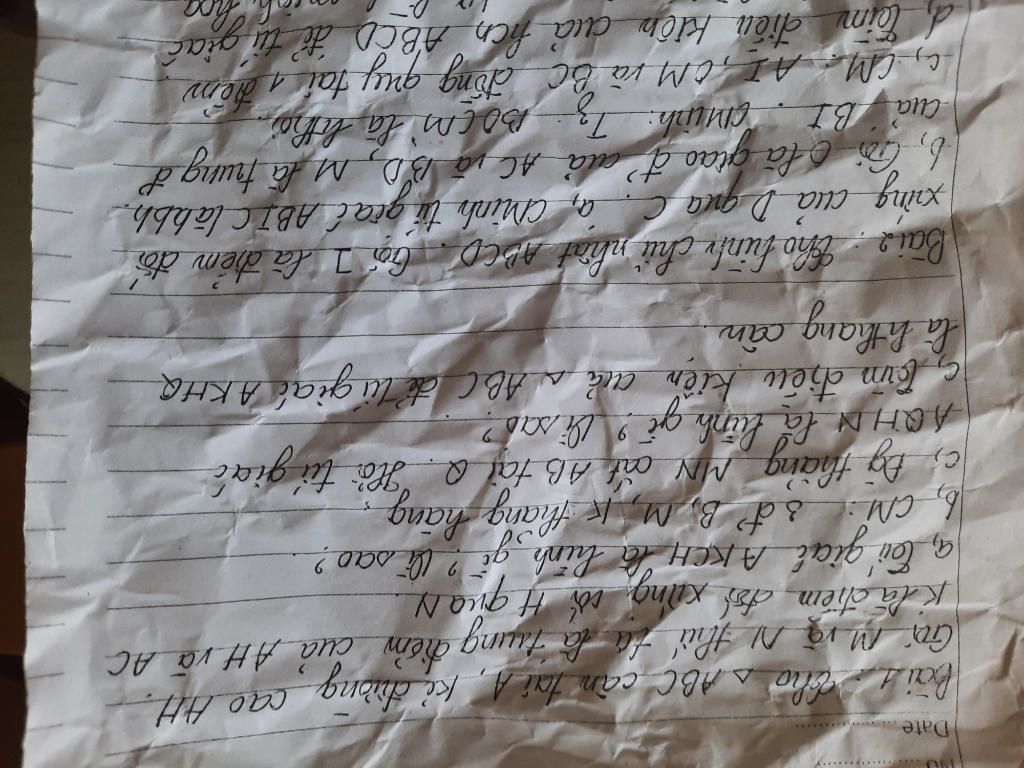 No
Date
Bài 1: Cho △ ABC cân tại A, kẻ đường cao AH.
Gọi M và N thứ tự là trung điểm của AH và AC
K là điểm đối xứng với H qua N.
a, Tứ giác AKCH là hình gì? Vì sao?
b, CM: 3 đ' B, M, K thẳng hàng.
c, Đg thẳng MN cắt AB tại Q. Hỏi tứ giác
AQHN là hình gì? Vì sao?
c, Tìm điều kiện của △ ABC để tứ giác AKHQ
là hthang cân.
Bài 2: Cho hình chữ nhật ABCD. Gọi I là điểm đối
xứng của D qua C. a, CMinh tứ giác ABIC là hbh.
b, Gọi O là giao đ' của AC và BD, M là trung đ'
của BI. CMinh: Tg BOCM là hthoi.
c, CM: AI, CM và BC đồng quy tại 1 điểm
d, Tìm điều kiện của hcn ABCD để tứ giác